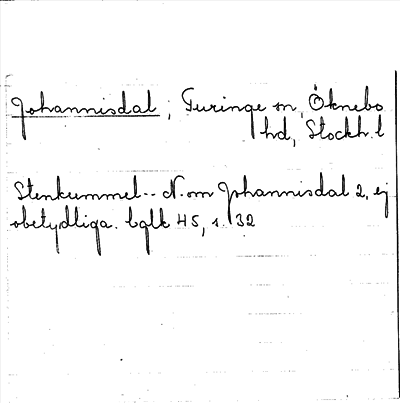 Johannisdal, Turinge sn, Öknebo
hd, Stockh. l
Stenkummel-- N. om Johannisdal 2, ej
obetydliga. bglb 45, s. 32